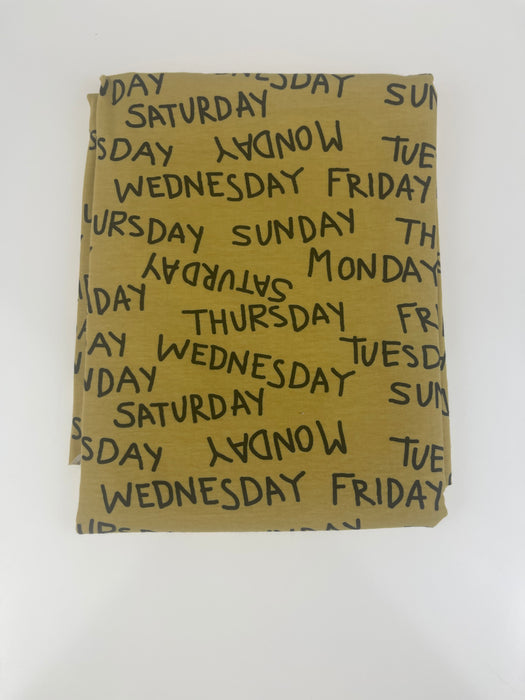 NDAY WEDNESDAY SUN
SATURDAY
SDAY MONDAY TUE
WEDNESDAY FRIDAY
URSDAY SUNDAY TH
SATURDAY MONDAY
IDAY
THURSDAY FRI
AY WEDNESDAY TUESD
NDAY SUN
SATURDAY
SDAY MONDAY TUE
WEDNESDAY FRIDAY